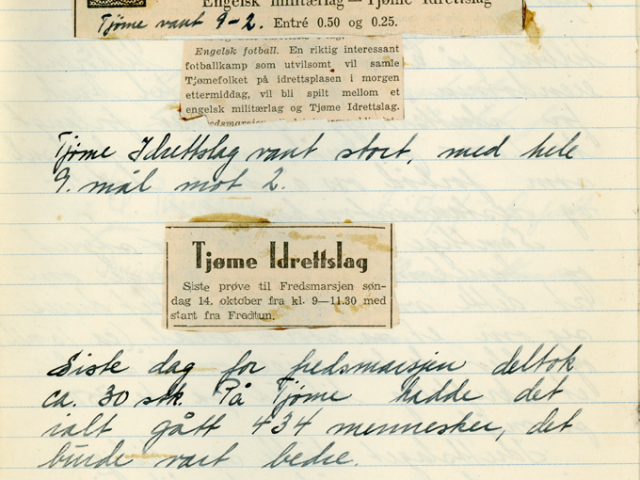 Engelsk militærlag — Tjøme Idrettslag
Tjøme vant 9-2. Entré 0.50 og 0.25.
Engelsk fotball. En riktig interessant
fotballkamp som utvilsomt vil samle
Tjømefolket på idrettsplasen i morgen
ettermiddag, vil bli spilt mellom et
engelsk militærlag og Tjøme Idrettslag.
Tjøme Idrettslag vant stort, med hele
9. mål mot 2.
Tjøme Idrettslag
Siste prøve til Fredsmarsjen søn-
dag 14. oktober fra kl. 9—11.30 med
start fra Fredtun.
Siste dag for fredsmarsjen deltok
ca. 30 stk. På Tjøme hadde det
ialt gått 434 mennesker, det
burde vært bedre.